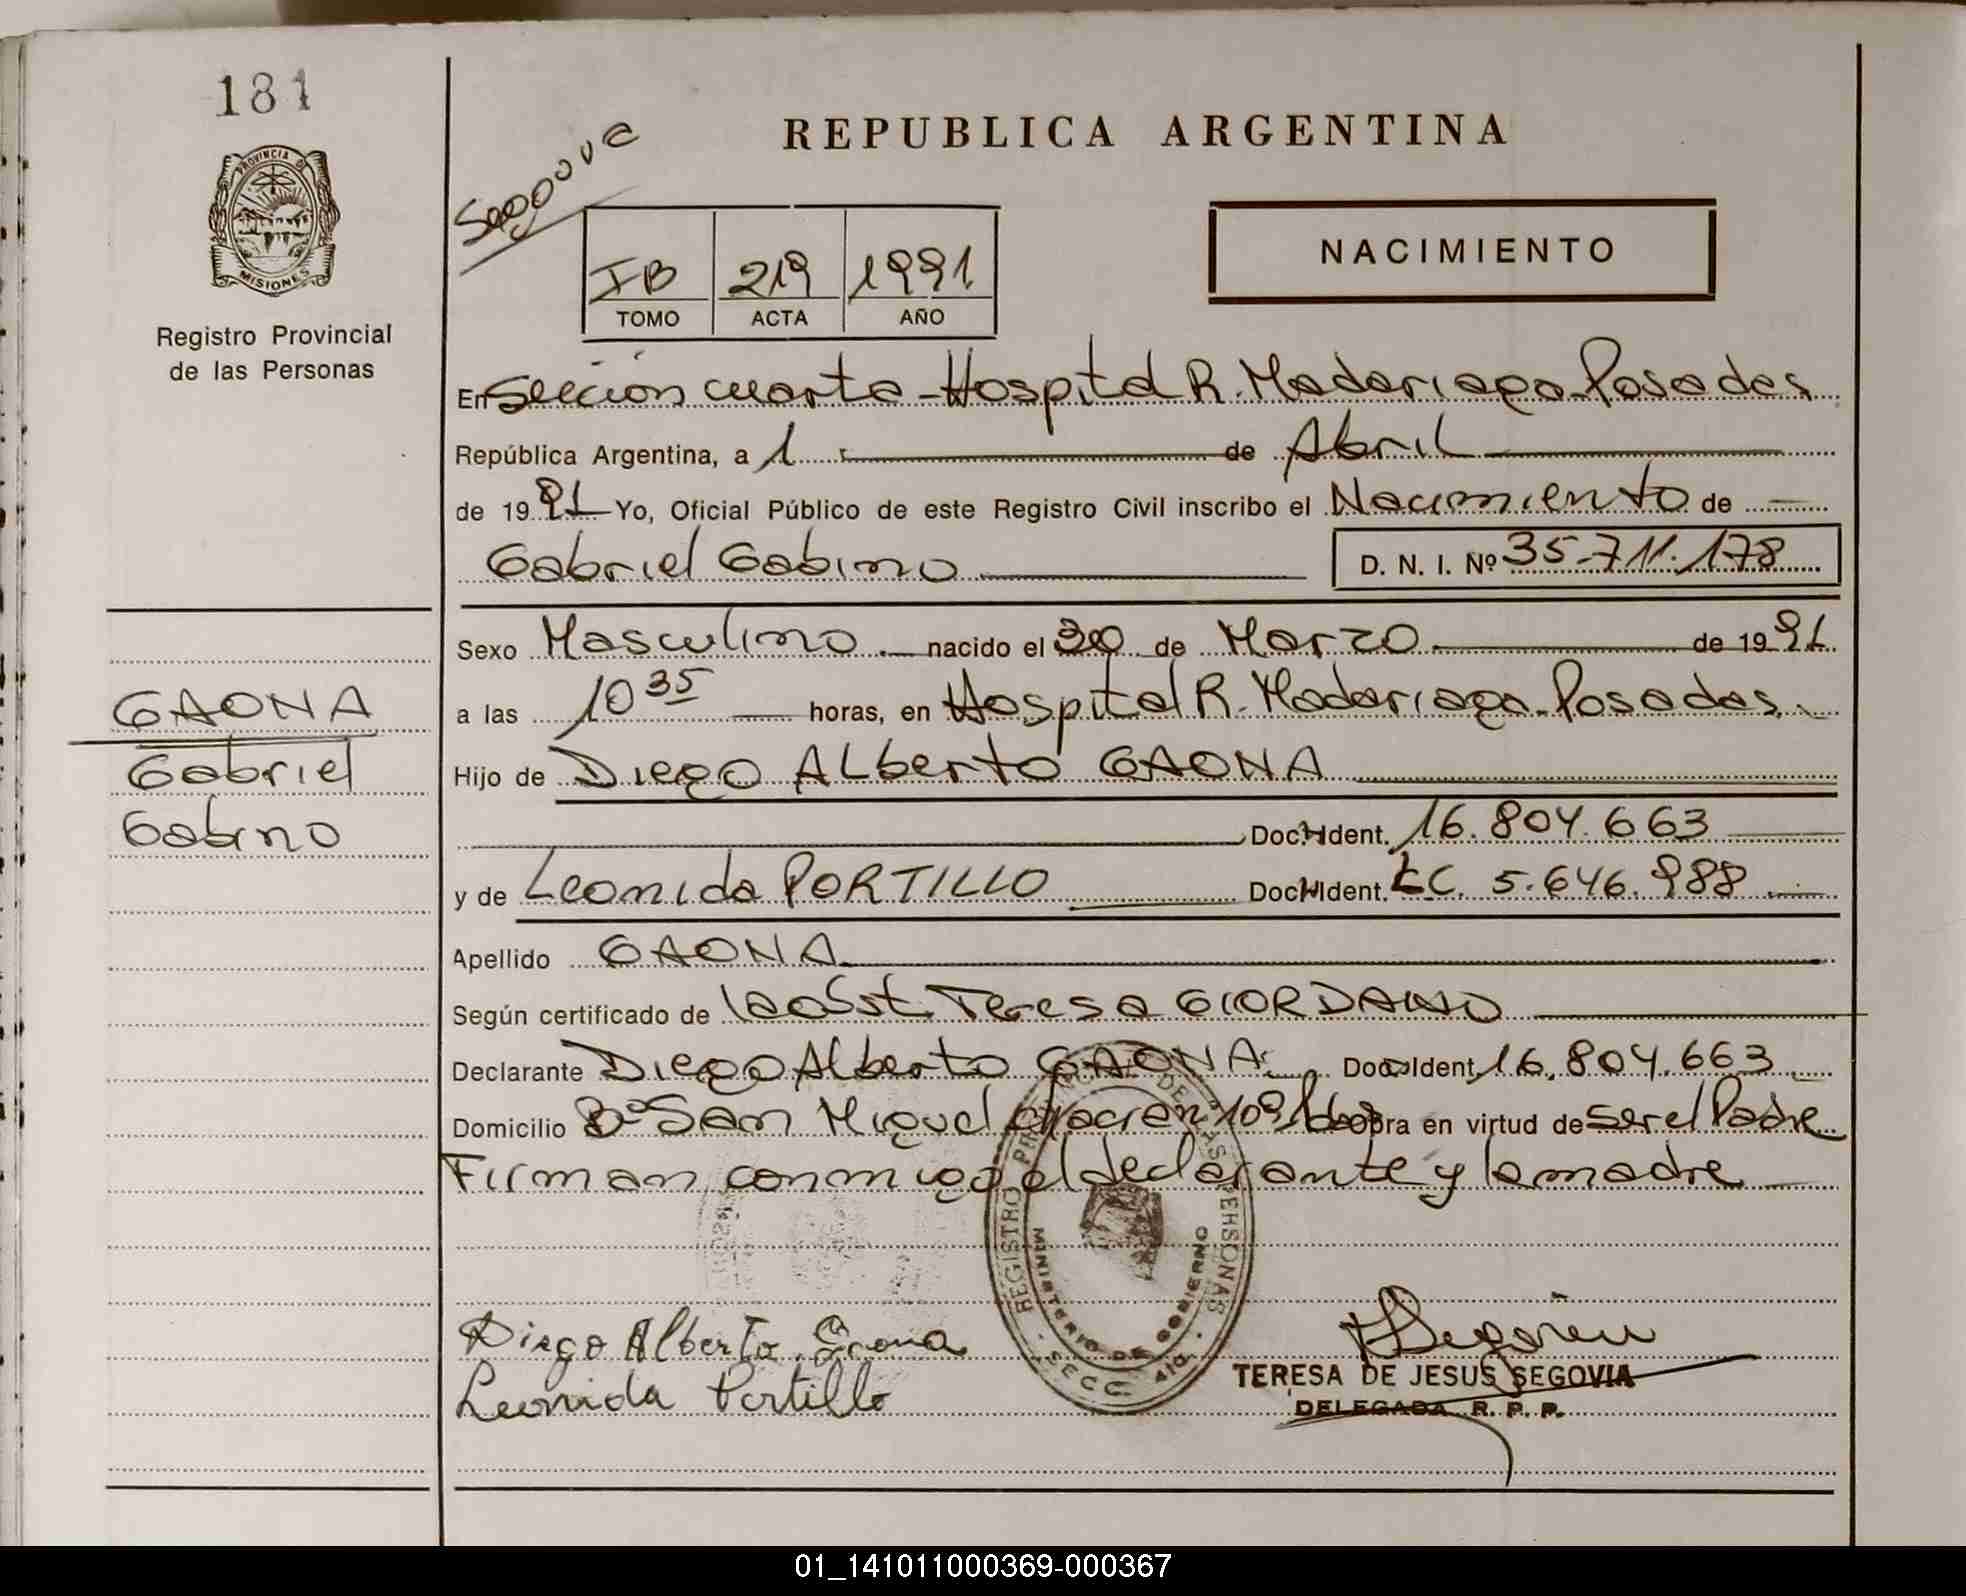 181
PROVINCIA D
MISIONES
Registro Provincial
de las Personas
REPUBLICA ARGENTINA
Segovia
IB 219 1991
TOMO ACTA AÑO
NACIMIENTO
En Sección cuarta - Hospital R. Madariaga - Posadas
República Argentina, a 1 de Abril
de 1991 Yo, Oficial Público de este Registro Civil inscribo el Nacimiento de
Gabriel Gabino D. N. I. Nº 35.711.178
Sexo Masculino nacido el 30 de Marzo de 1991
a las 10 35 horas, en Hospital R. Madariaga - Posadas
Hijo de Diego Alberto GAONA
Doc. Ident. 16.804.663
y de Leonida PORTILLO Doc. Ident. 5.646.988
Apellido GAONA
Según certificado de la obst. Teresa GIORDANO
Declarante Diego Alberto GAONA Doc. Ident. 16.804.663
Domicilio Bº San Miguel obra en virtud de ser el Padre
Firman conmigo el declarante y la madre
GAONA
Gabriel
Gabino
REGISTRO DE LAS PERSONAS
MINISTERIO DE GOBIERNO
SECC. 4ta.
Diego Alberto Gaona
Leonida Portillo
TERESA DE JESUS SEGOVIA
DELEGADA R. P. P.
01_141011000369-000367